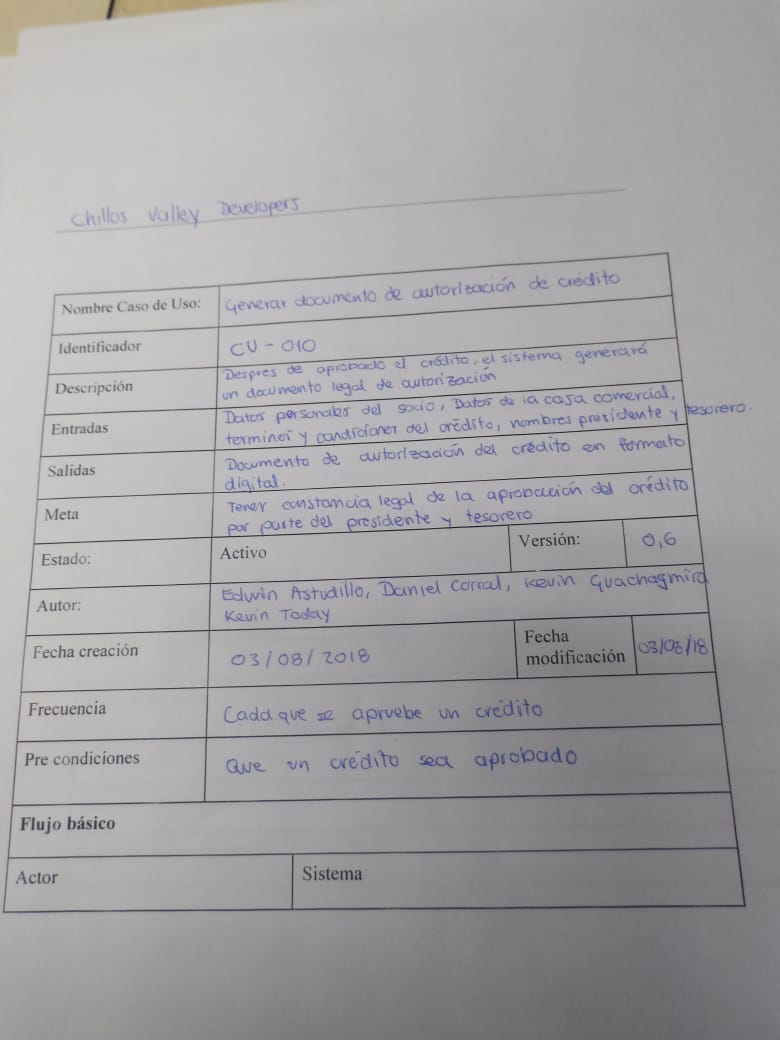 Chillos Valley Developers
Nombre Caso de Uso: Generar documento de autorización de crédito
Identificador CU - 010
Descripción Despres de aprobado el crédito, el sistema generará
un documento legal de autorización
Entradas Datos personales del socio, Datos de la casa comercial,
terminos y condiciones del crédito, nombres presidente y tesorero.
Salidas Documento de autorización del crédito en formato
digital.
Meta Tener constancia legal de la aprobación del crédito
por parte del presidente y tesorero
Estado: Activo Versión: 0,6
Autor: Edwin Astudillo, Daniel Corral, Kevin Guachagmira
Kevin Today
Fecha creación 03/08/2018 Fecha
modificación 03/08/18
Frecuencia Cada que se apruebe un crédito
Pre condiciones Que un crédito sea aprobado
Flujo básico
Actor Sistema